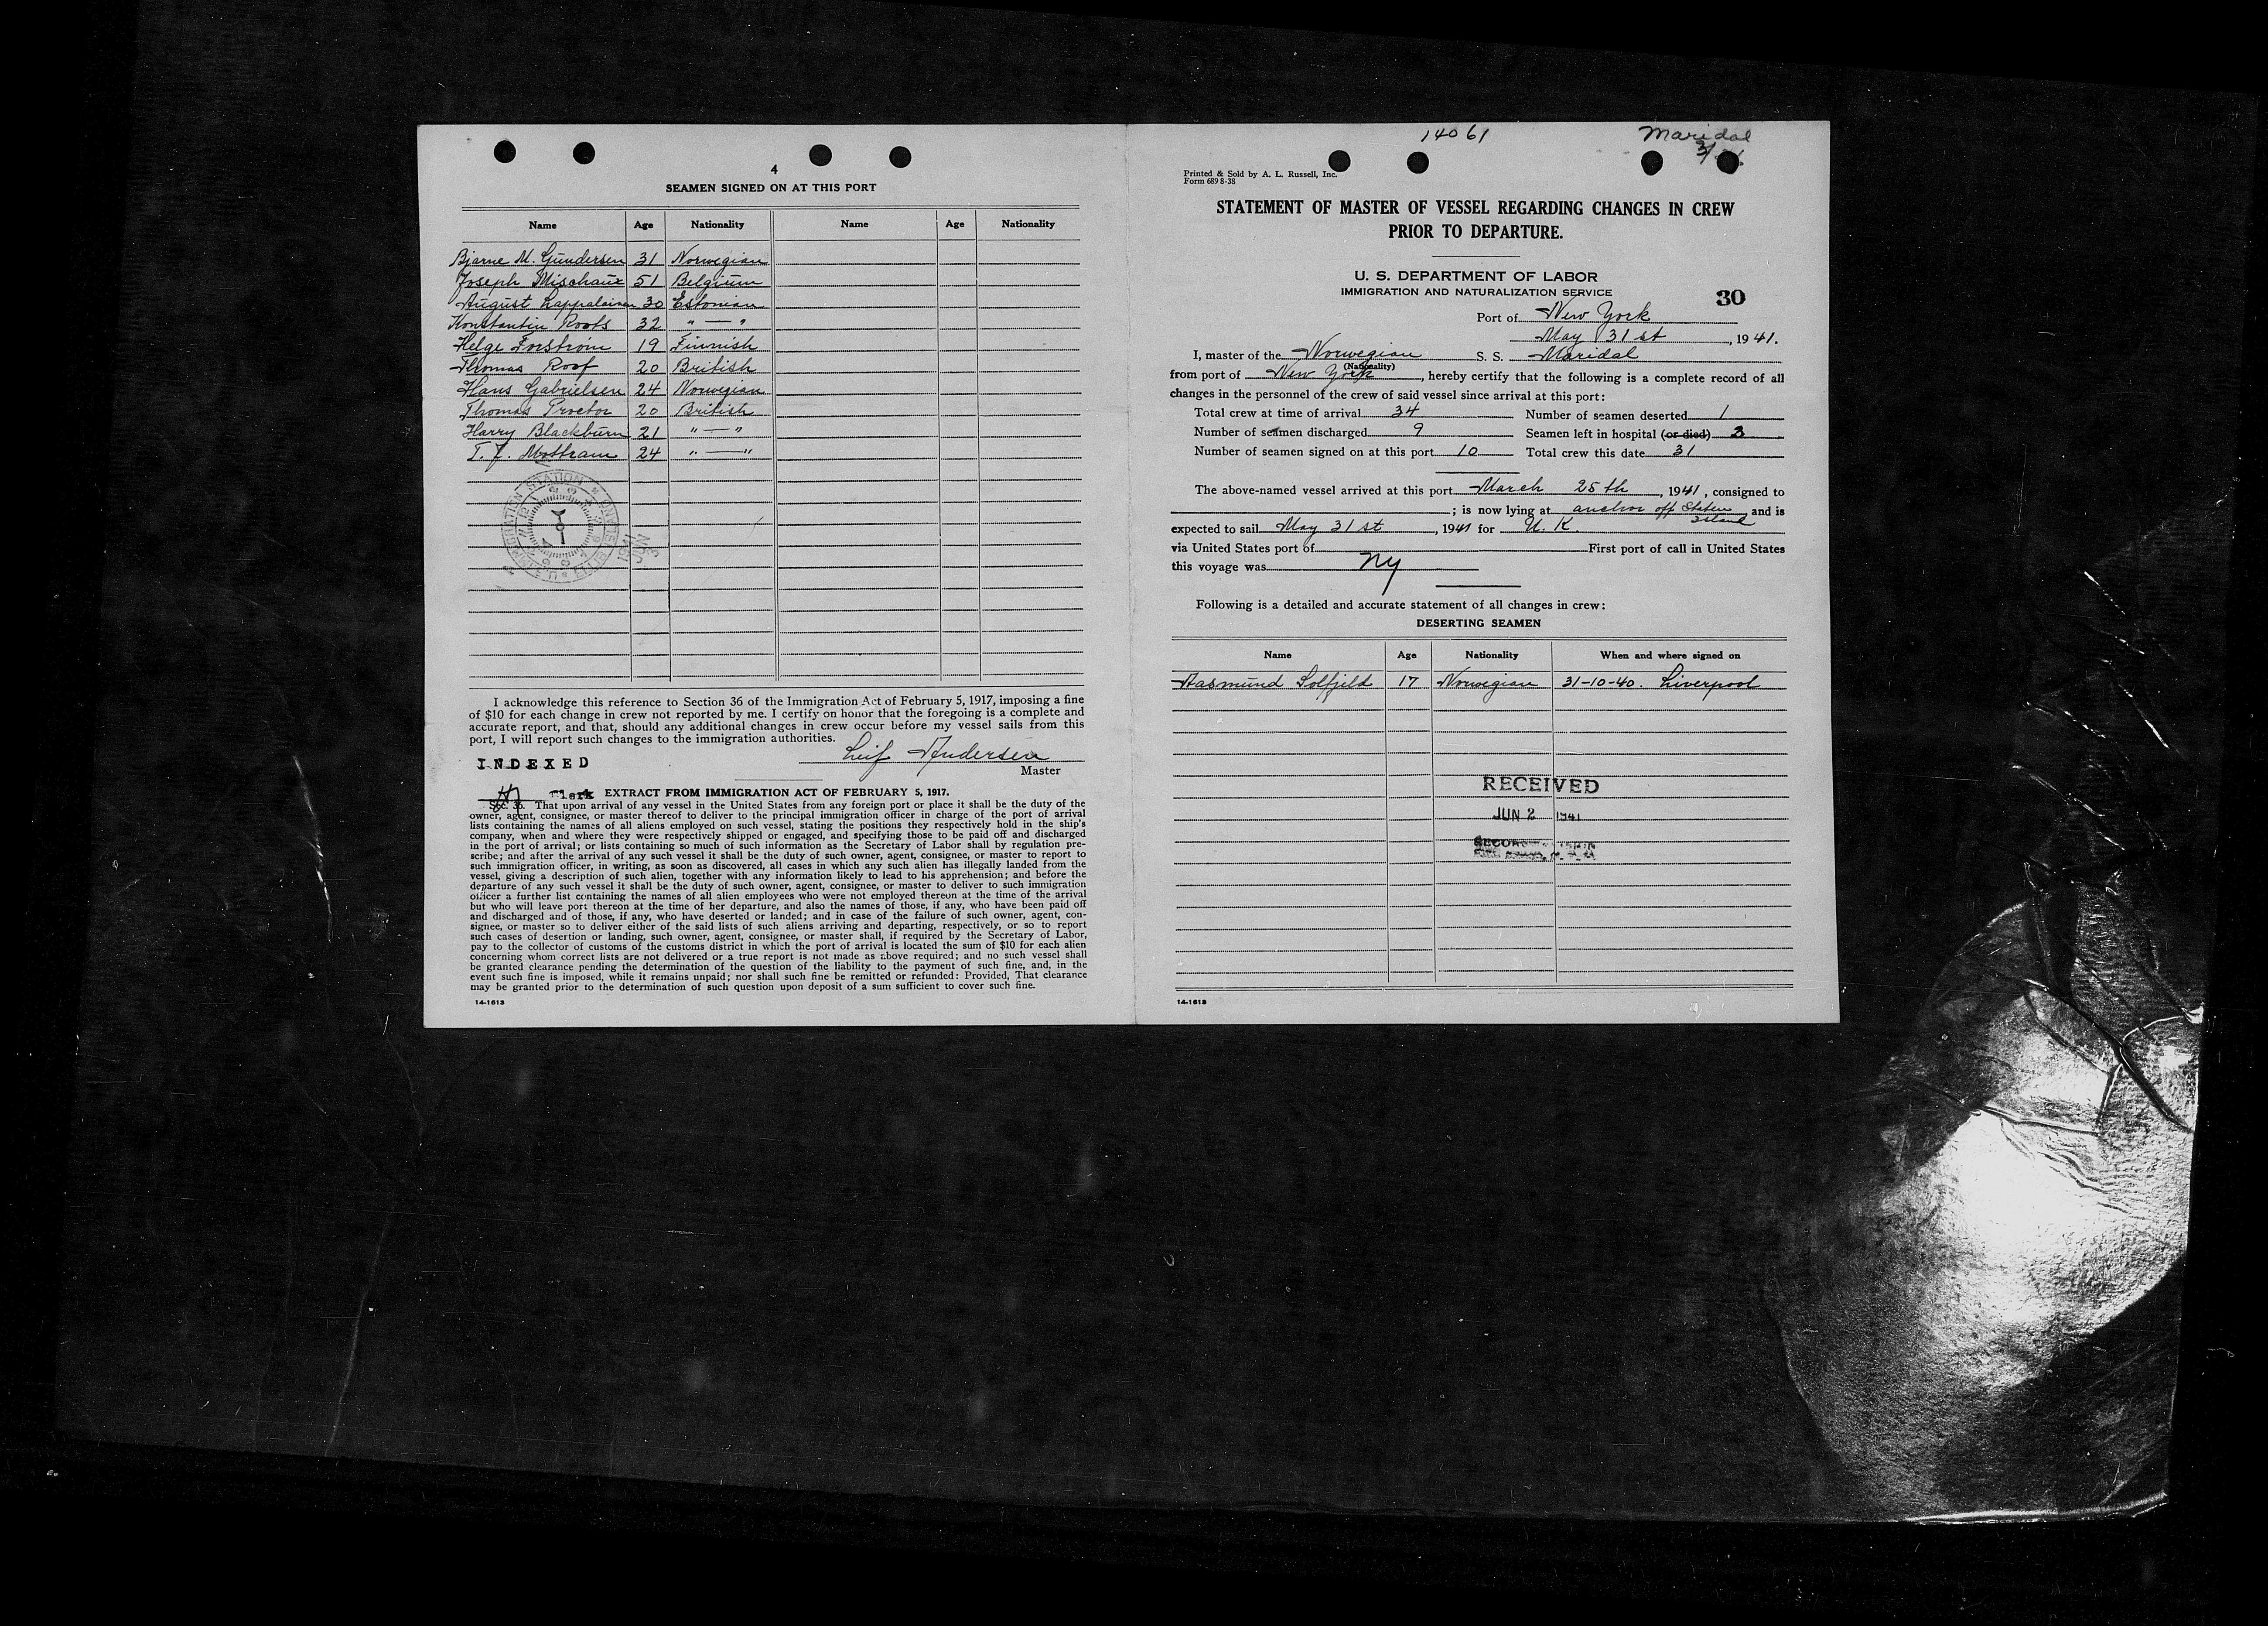 4
SEAMEN SIGNED ON AT THIS PORT
Name Age Nationality Name Age Nationality
Bjarne M. Gundersen 31 Norwegian
Joseph Mischaux 51 Belgium
August Lappalainen 30 Estonian
Konstantin Roots 32 " — "
Helge Forström 19 Finnish
Thomas Roof 20 British
Hans Gabrielsen 24 Norwegian
Thomas Proctor 20 British
Harry Blackburn 21 " — "
T. Mottram 24 " — "
JUN 3
1941
I acknowledge this reference to Section 36 of the Immigration Act of February 5, 1917, imposing a fine
of $10 for each change in crew not reported by me. I certify on honor that the foregoing is a complete and
accurate report, and that, should any additional changes in crew occur before my vessel sails from this
port, I will report such changes to the immigration authorities.
Leif Andersen
Master
INDEXED
Clerk
EXTRACT FROM IMMIGRATION ACT OF FEBRUARY 5, 1917.
Sec. 36. That upon arrival of any vessel in the United States from any foreign port or place it shall be the duty of the
owner, agent, consignee, or master thereof to deliver to the principal immigration officer in charge of the port of arrival
lists containing the names of all aliens employed on such vessel, stating the positions they respectively hold in the ship's
company, when and where they were respectively shipped or engaged, and specifying those to be paid off and discharged
in the port of arrival; or lists containing so much of such information as the Secretary of Labor shall by regulation pre-
scribe; and after the arrival of any such vessel it shall be the duty of such owner, agent, consignee, or master to report to
such immigration officer, in writing, as soon as discovered, all cases in which any such alien has illegally landed from the
vessel, giving a description of such alien, together with any information likely to lead to his apprehension; and before the
departure of any such vessel it shall be the duty of such owner, agent, consignee, or master to deliver to such immigration
officer a further list containing the names of all alien employees who were not employed thereon at the time of the arrival
but who will leave port thereon at the time of her departure, and also the names of those, if any, who have been paid off
and discharged and of those, if any, who have deserted or landed; and in case of the failure of such owner, agent, con-
signee, or master so to deliver either of the said lists of such aliens arriving and departing, respectively, or so to report
such cases of desertion or landing, such owner, agent, consignee, or master shall, if required by the Secretary of Labor,
pay to the collector of customs of the customs district in which the port of arrival is located the sum of $10 for each alien
concerning whom correct lists are not delivered or a true report is not made as above required; and no such vessel shall
be granted clearance pending the determination of the question of the liability to the payment of such fine, and, in the
event such fine is imposed, while it remains unpaid; nor shall such fine be remitted or refunded: Provided, That clearance
may be granted prior to the determination of such question upon deposit of a sum sufficient to cover such fine.
14-1613
14061
Maridal
Printed & Sold by A. L. Russell, Inc.
Form 689 8-38
STATEMENT OF MASTER OF VESSEL REGARDING CHANGES IN CREW
PRIOR TO DEPARTURE.
U. S. DEPARTMENT OF LABOR
IMMIGRATION AND NATURALIZATION SERVICE
30
Port of New York
May 31st, 1941.
I, master of the Norwegian S. S. Maridal
(Nationality)
from port of New York, hereby certify that the following is a complete record of all
changes in the personnel of the crew of said vessel since arrival at this port:
Total crew at time of arrival 34 Number of seamen deserted 1
Number of seamen discharged 9 Seamen left in hospital (or died) 3
Number of seamen signed on at this port 10 Total crew this date 31
The above-named vessel arrived at this port March 25th, 1941, consigned to
; is now lying at anchor off Staten Island and is
expected to sail May 31st, 1941 for U.K.
via United States port of First port of call in United States
this voyage was NY
Following is a detailed and accurate statement of all changes in crew:
DESERTING SEAMEN
Name Age Nationality When and where signed on
Aasmund Solfjeld 17 Norwegian 31-10-40. Liverpool
RECEIVED
JUN 2 1941
14-1613